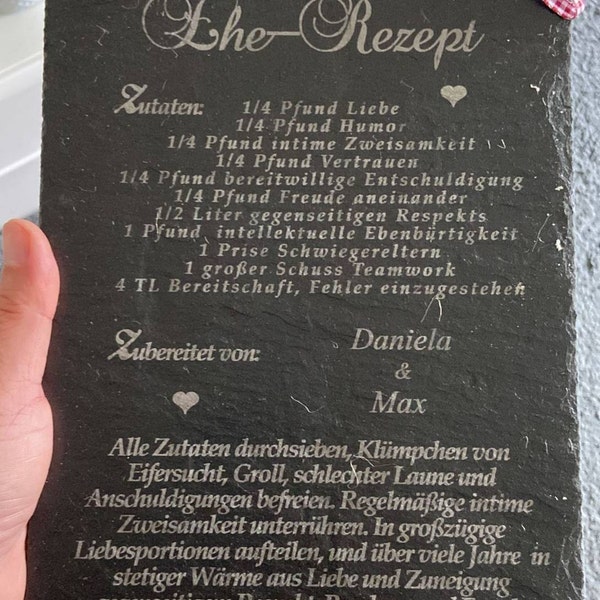 Ehe-Rezept
Zutaten: 1/4 Pfund Liebe
1/4 Pfund Humor
1/4 Pfund intime Zweisamkeit
1/4 Pfund Vertrauen
1/4 Pfund bereitwillige Entschuldigung
1/4 Pfund Freude aneinander
1/2 Liter gegenseitigen Respekts
1 Pfund intellektuelle Ebenbürtigkeit
1 Prise Schwiegereltern
1 großer Schuss Teamwork
4 TL Bereitschaft, Fehler einzugestehen
Zubereitet von: Daniela
&
Max
Alle Zutaten durchsieben, Klümpchen von
Eifersucht, Groll, schlechter Laune und
Anschuldigungen befreien. Regelmäßige intime
Zweisamkeit unterrühren. In großzügige
Liebesportionen aufteilen, und über viele Jahre in
stetiger Wärme aus Liebe und Zuneigung